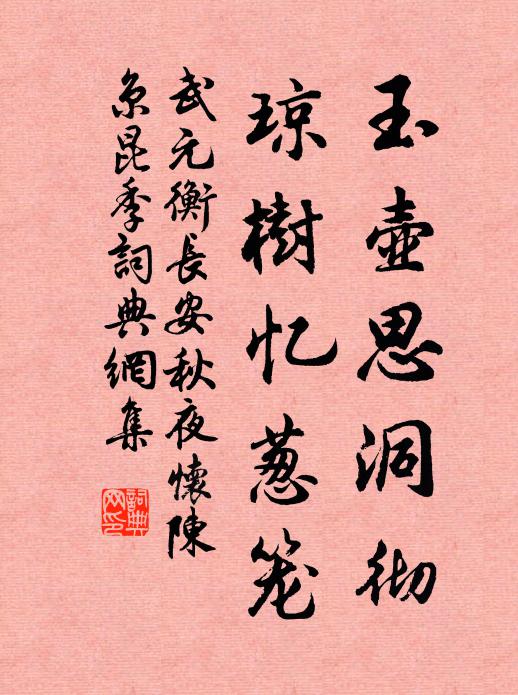 玉壺思洞彻
琼樹忆葱笼
武元衡長安秋夜懷陳
京昆季詞典網集
詞典网印